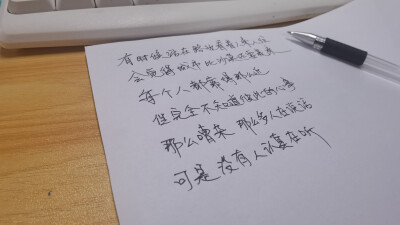 有时候站在路边看着人来人往
会觉得城市比沙漠还要荒凉
每个人都靠得那么近
但完全不知道彼此的心事
那么嘈杂 那么多人在说话
可是没有人认真在听